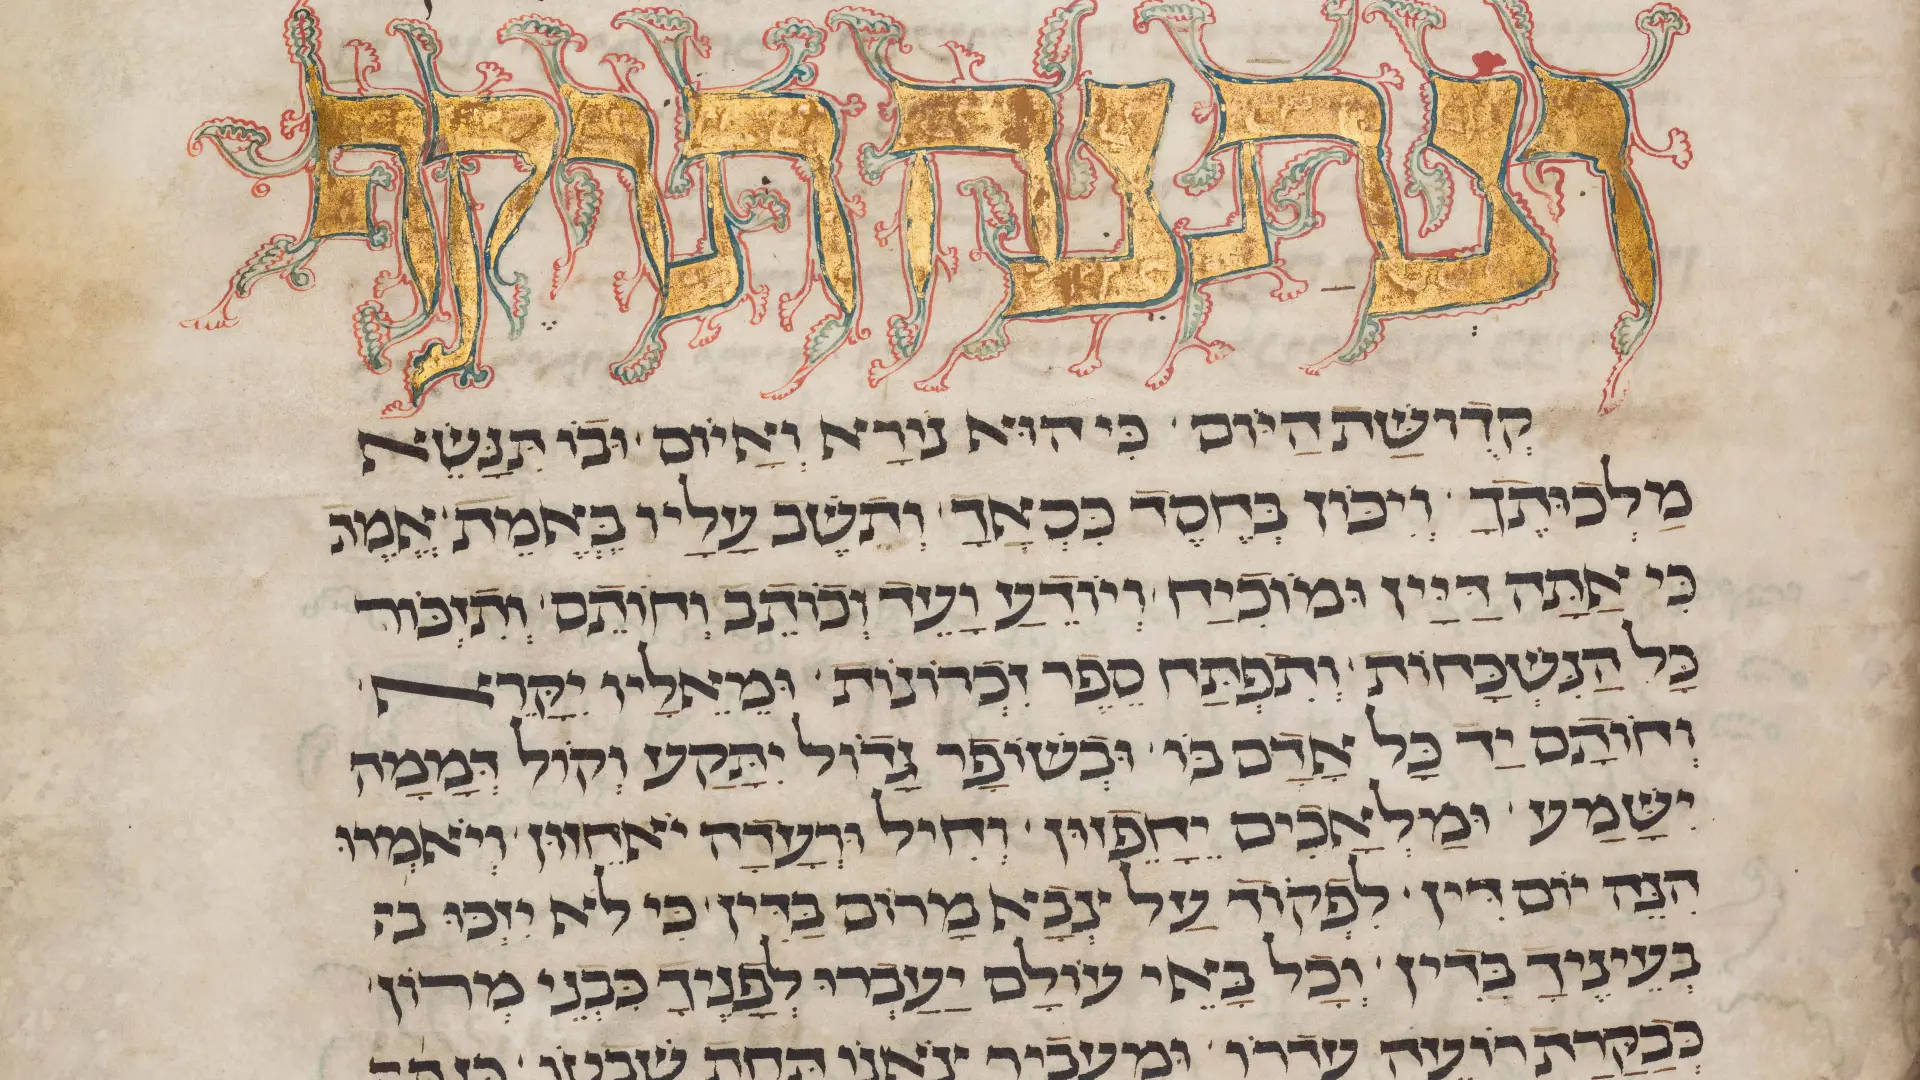 ונתנה תוקף
קְדֻושַּׁת הַיּוֹם · כִּי הוּא נוֹרָא וְאָיוֹם · וּבֹו תִּנַּשֵּׂא
מַלְכוּתֶךָ · וְיִכּוֹן בְּחֶסֶד כִּסְאָךְ · וְתֵשֵׁב עָלָיו בֶּאֱמֶת · אֱמֶת
כִּי אַתָּה דַּיָּין וּמוֹכִיחַ · וְיוֹדֵעַ וָעֵד וְכוֹתֵב וְחוֹתֵם · וְתִזְכּוֹר
כָּל הַנִּשְׁכָּחוֹת · וְתִפְתַּח סֵפֶר זִכְרוֹנוֹת · וּמֵאֵלָיו יִקָּרֵא ·
וְחוֹתָם יַד כָּל אָדָם בּוֹ · וּבְשׁוֹפָר גָּדוֹל יִתָּקַע וְקוֹל דְּמָמָה
יִשָּׁמַע · וּמַלְאָכִים יֵחָפֵזוּן · וְחִיל וּרְעָדָה יֹאחֵזוּן · וְיֹאמְרוּ
הִנֵּה יוֹם דִּין · לִפְקוֹד עַל צְבָא מָרוֹם בַּדִּין · כִּי לֹא יִזְכּוּ ב
בְּעֵינֶיךָ בַּדִּין · וְכָל בָּאֵי עוֹלָם יַעַבְרוּ לְפָנֶיךָ כִּבְנֵי מְרוֹן ·
כְּבַקָּרַת רוֹעֶה עֶדְרוֹ · וּמַעֲבִיר צֹאנוֹ תַּחַת שִׁבְטוֹ ·